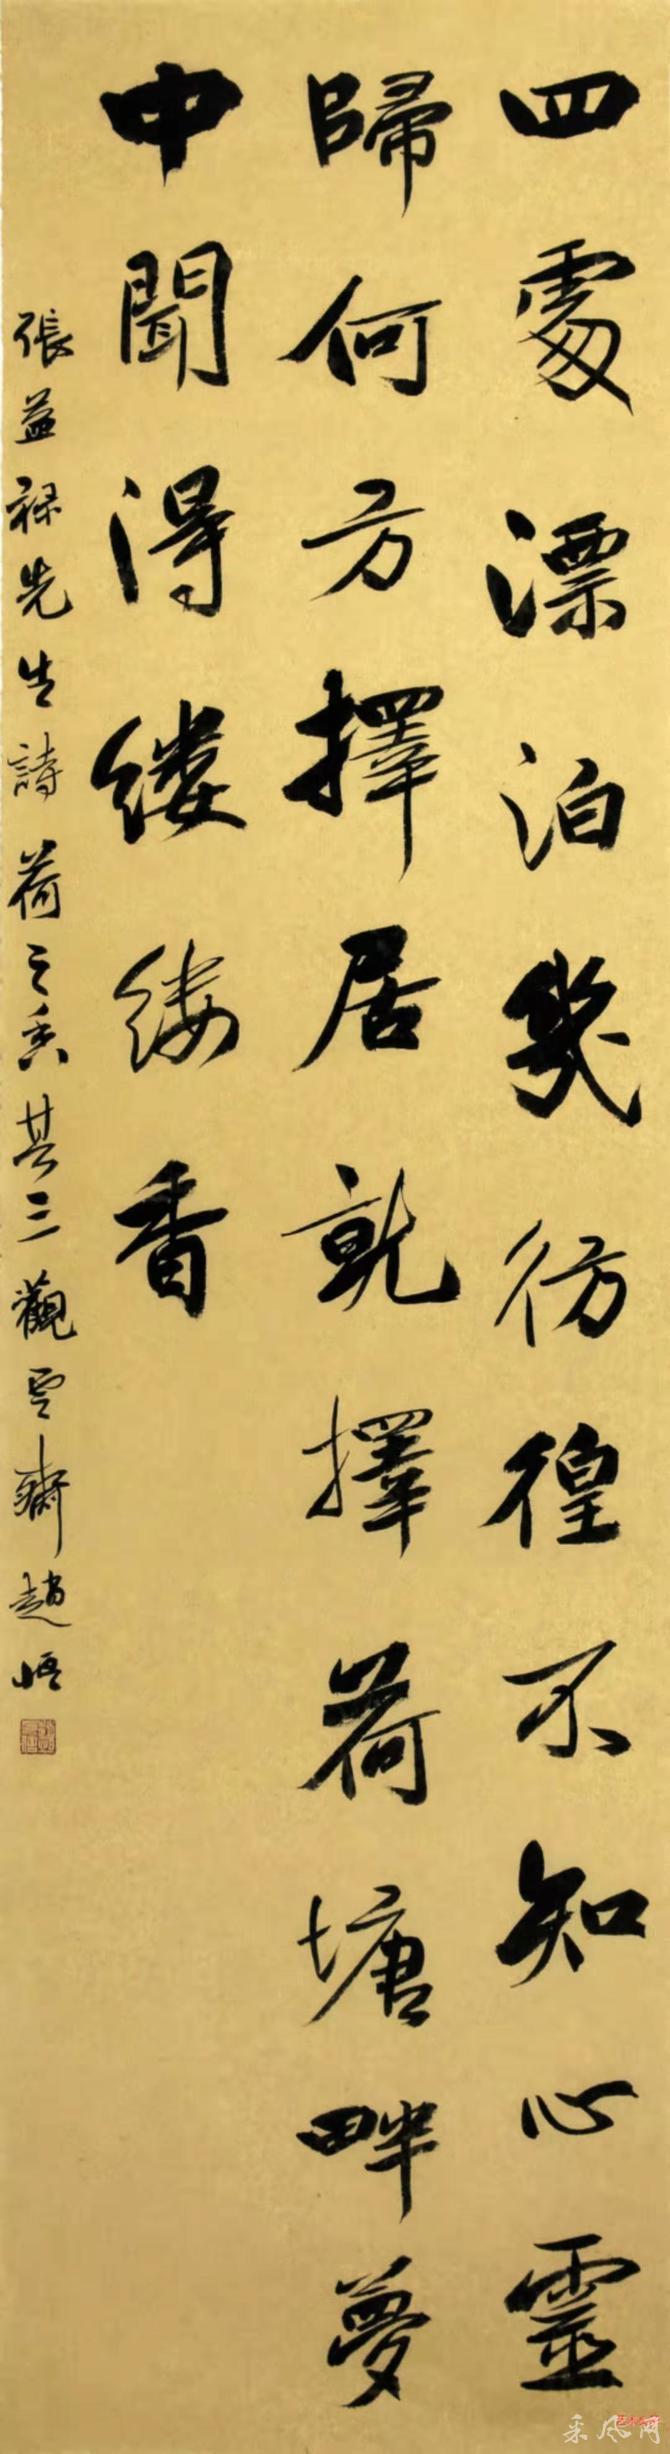 四處漂泊幾彷徨不知心靈
歸何方擇居就擇荷塘畔夢
中聞得缕缕香
張益祿先生詩荷之香其三觀雲齋趙悟
采风网